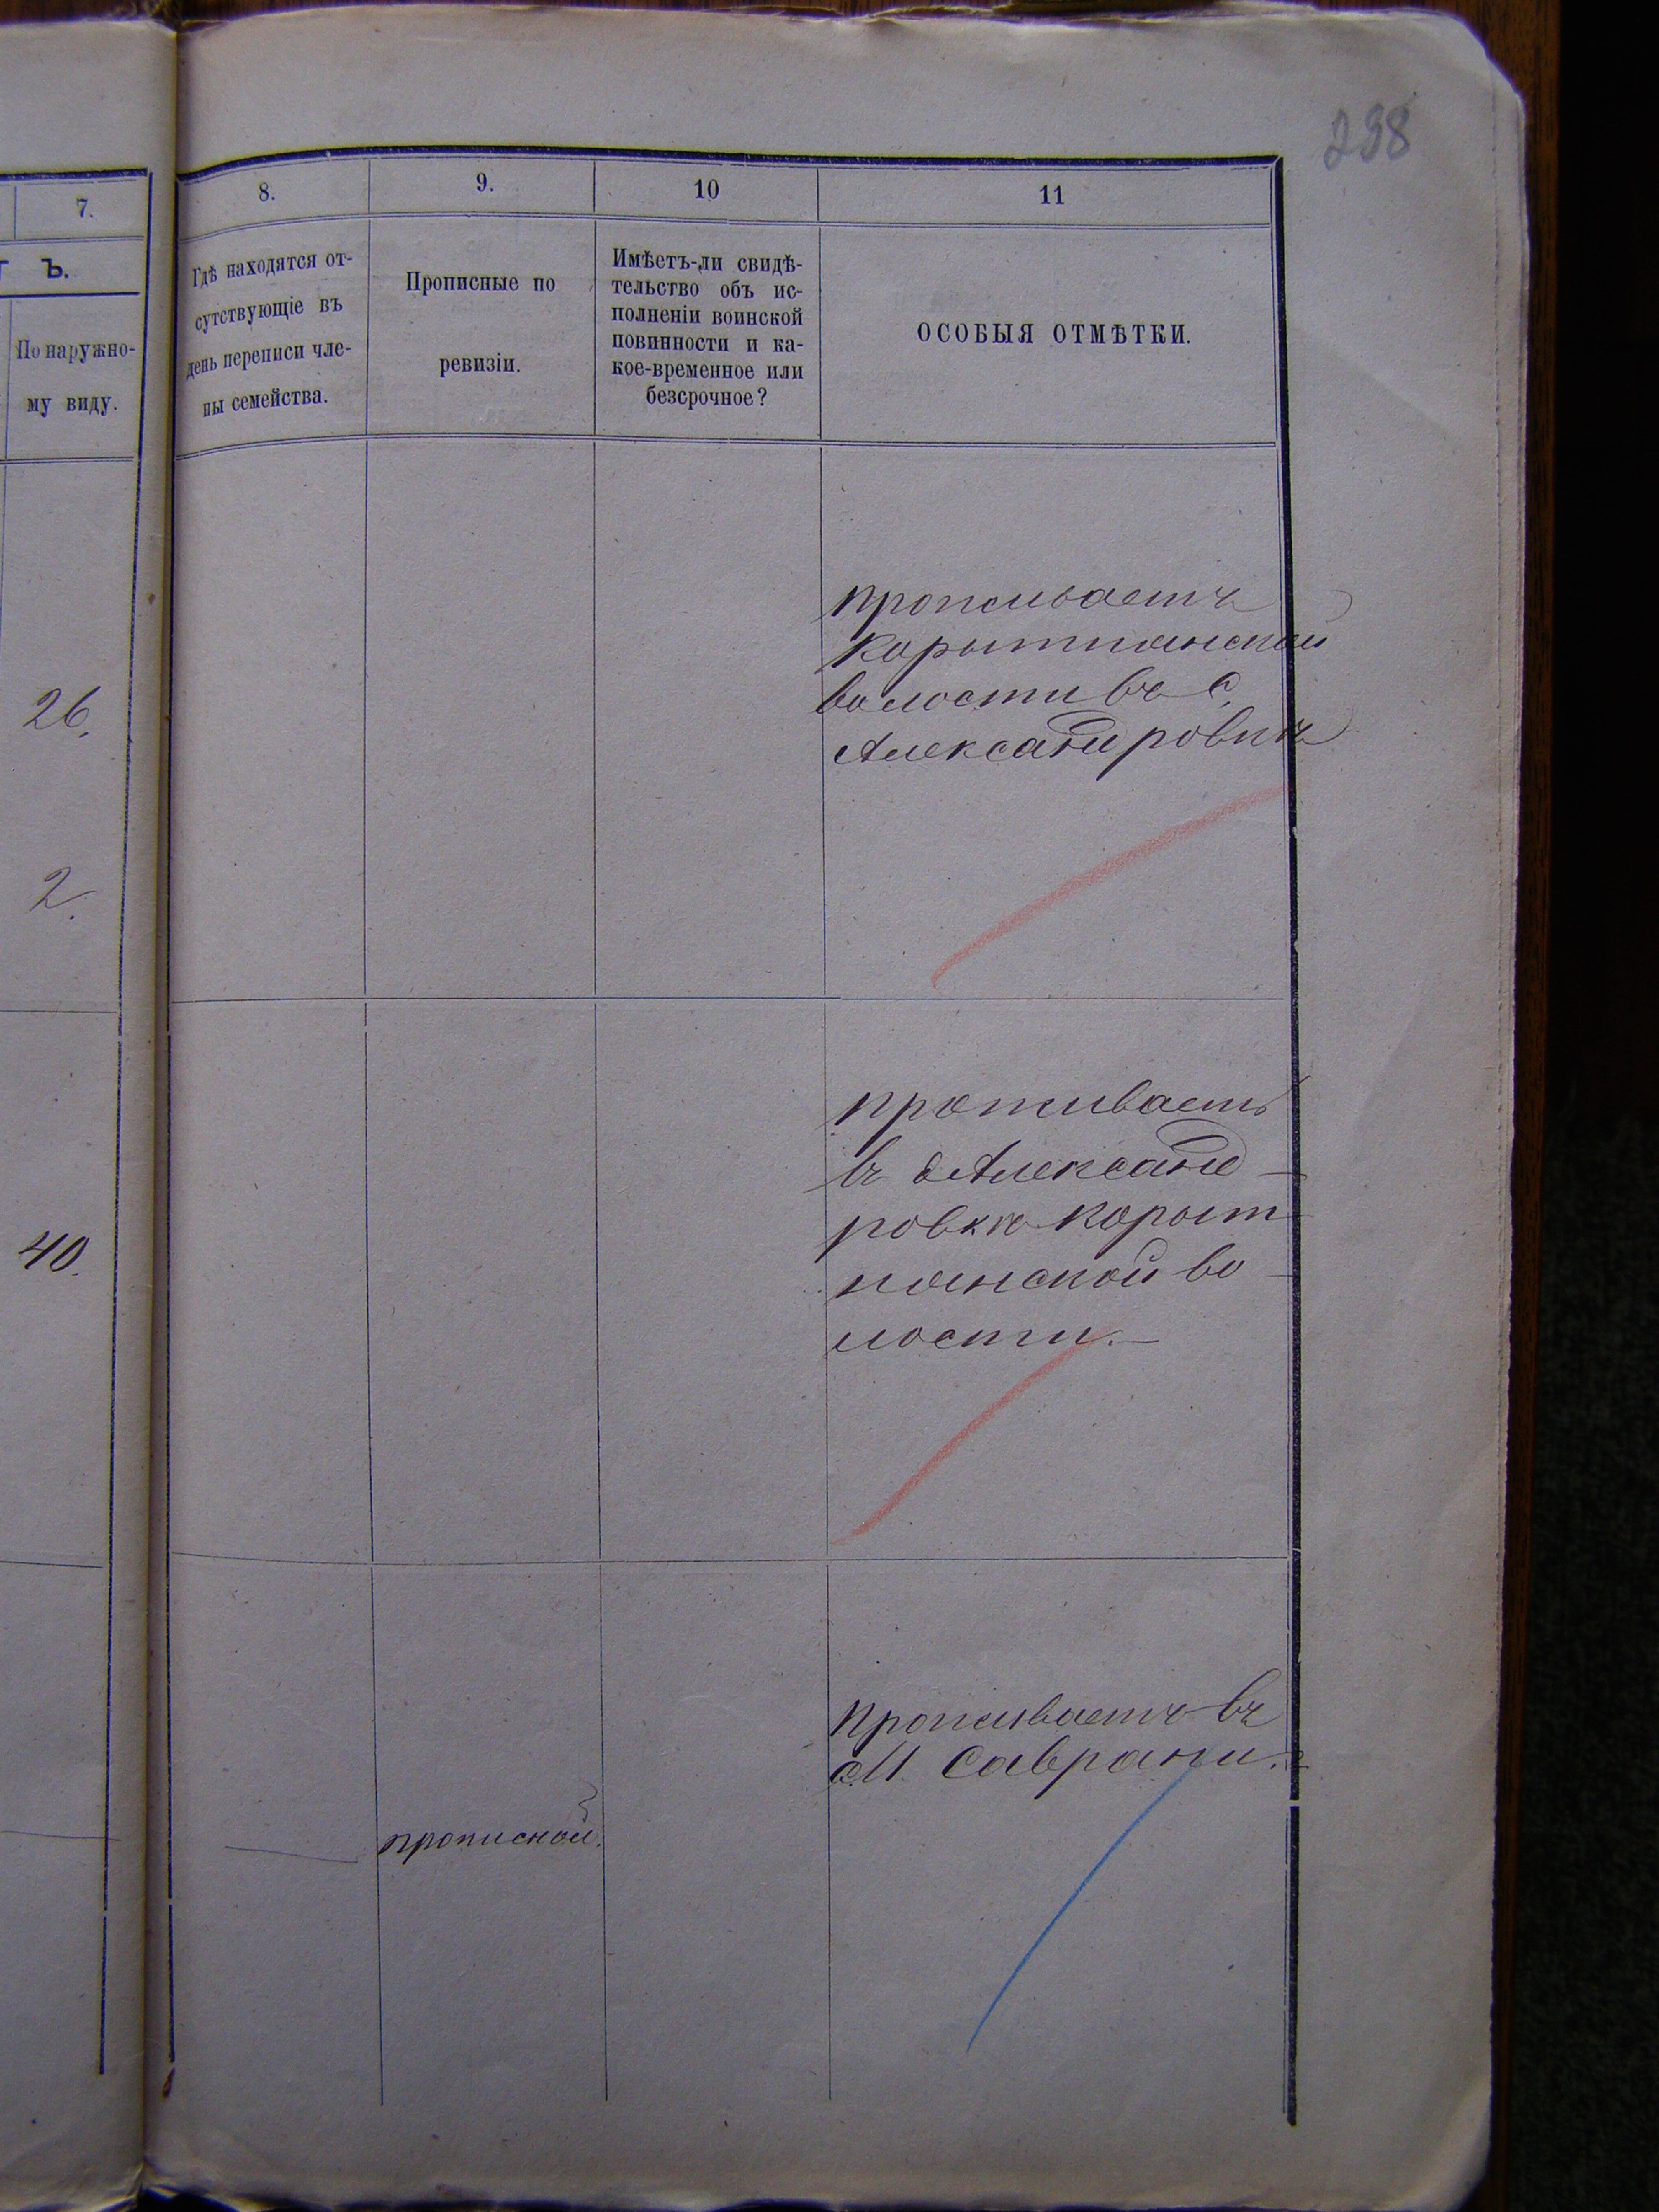 298
7.
8.
9.
10
11
Ъ.
По наружно-
му виду.
Гдѣ находятся от-
сутствующіе въ
день переписи чле-
ны семейства.
Прописные по
ревизіи.
Имѣетъ-ли свидѣ-
тельство объ ис-
полненіи воинской
повинности и ка-
кое-временное или
безсрочное?
ОСОБЫЯ ОТМѢТКИ.
26.
2.
проживаетъ
Корытнянской
волости въ с.
Александровкѣ
40.
проживаетъ
въ Александ-
ровкѣ Корыт-
нянской во-
лости.—
прописной.
Проживаетъ въ
М. Саврани.